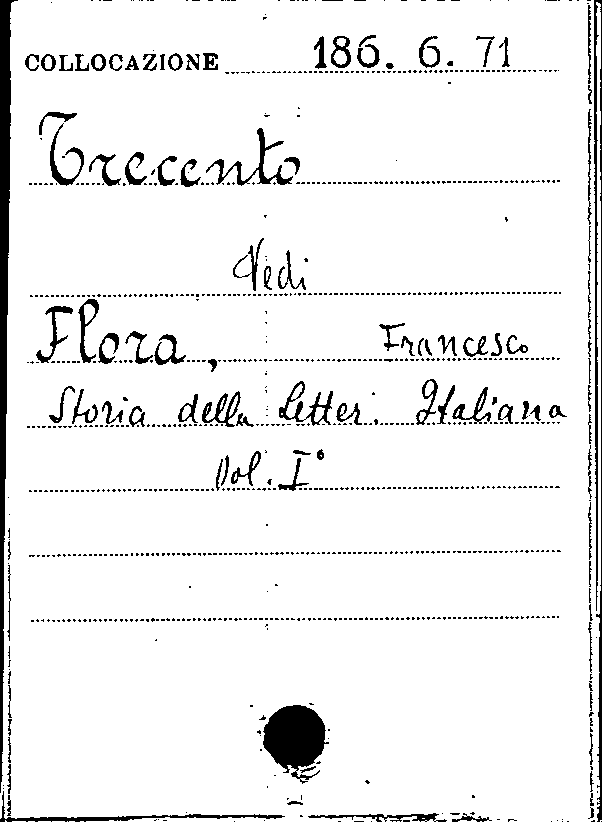 COLLOCAZIONE 186. 6. 71
Trecento
Vedi
Flora, Francesco
Storia della Letter. Italiana
Vol. I°